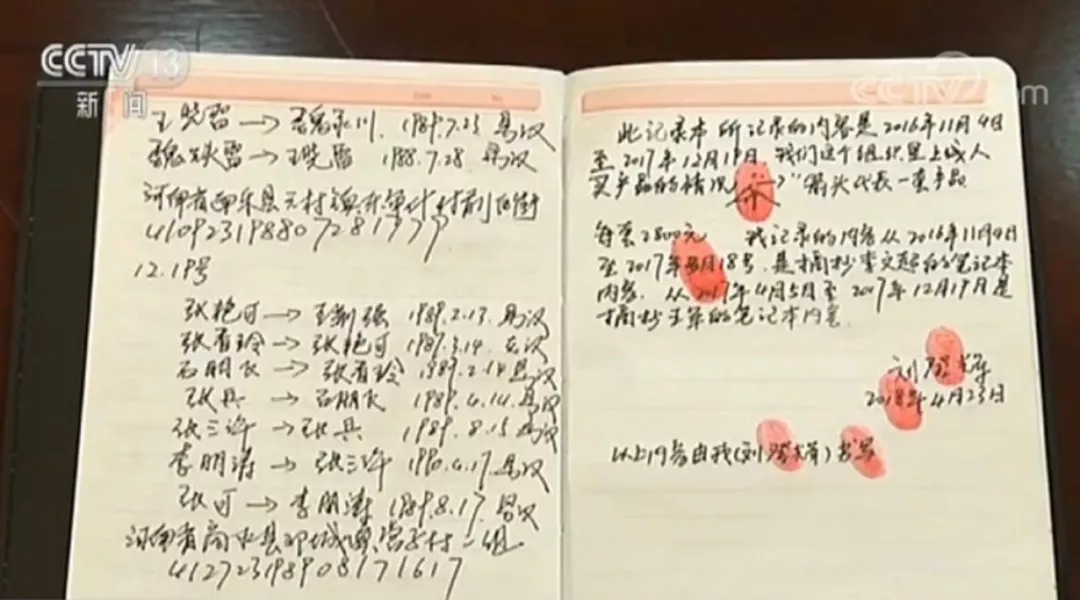 CCTV 13
新闻
CCTV com
王晓雷→魏永川 1989.7.23 男汉
→王晓雷 1988.7.28 男汉
河南省南乐县元村镇
12.19号
张艳可→王制强 1989.2.13. 男汉
张看玲→张艳可 1987.3.14. 女汉
石朋飞→张看玲 1989.2.14 男汉
张兵→石朋飞 1989.4.14. 男汉
张三许→张兵 1989.8.15 男汉
李明涛→张三许 1990.4.17. 男汉
张可→李明涛 1989.8.17. 男汉
河南省商水县邓城镇 村一组
此记录本所记录的内容是2016年11月4日
至2017年12月19日,我们这个组织里上线人
买产品的情况,"→"箭头代表一套产品
每套2800元 我记录的内容从2016年11月4日
至2017年 月18号,是摘抄李文 的笔记本
内容,从2017年4月5日至2017年12月19日是
摘抄王军的笔记本内容.
刘
2018年4月23日
以上内容由我(刘 )书写